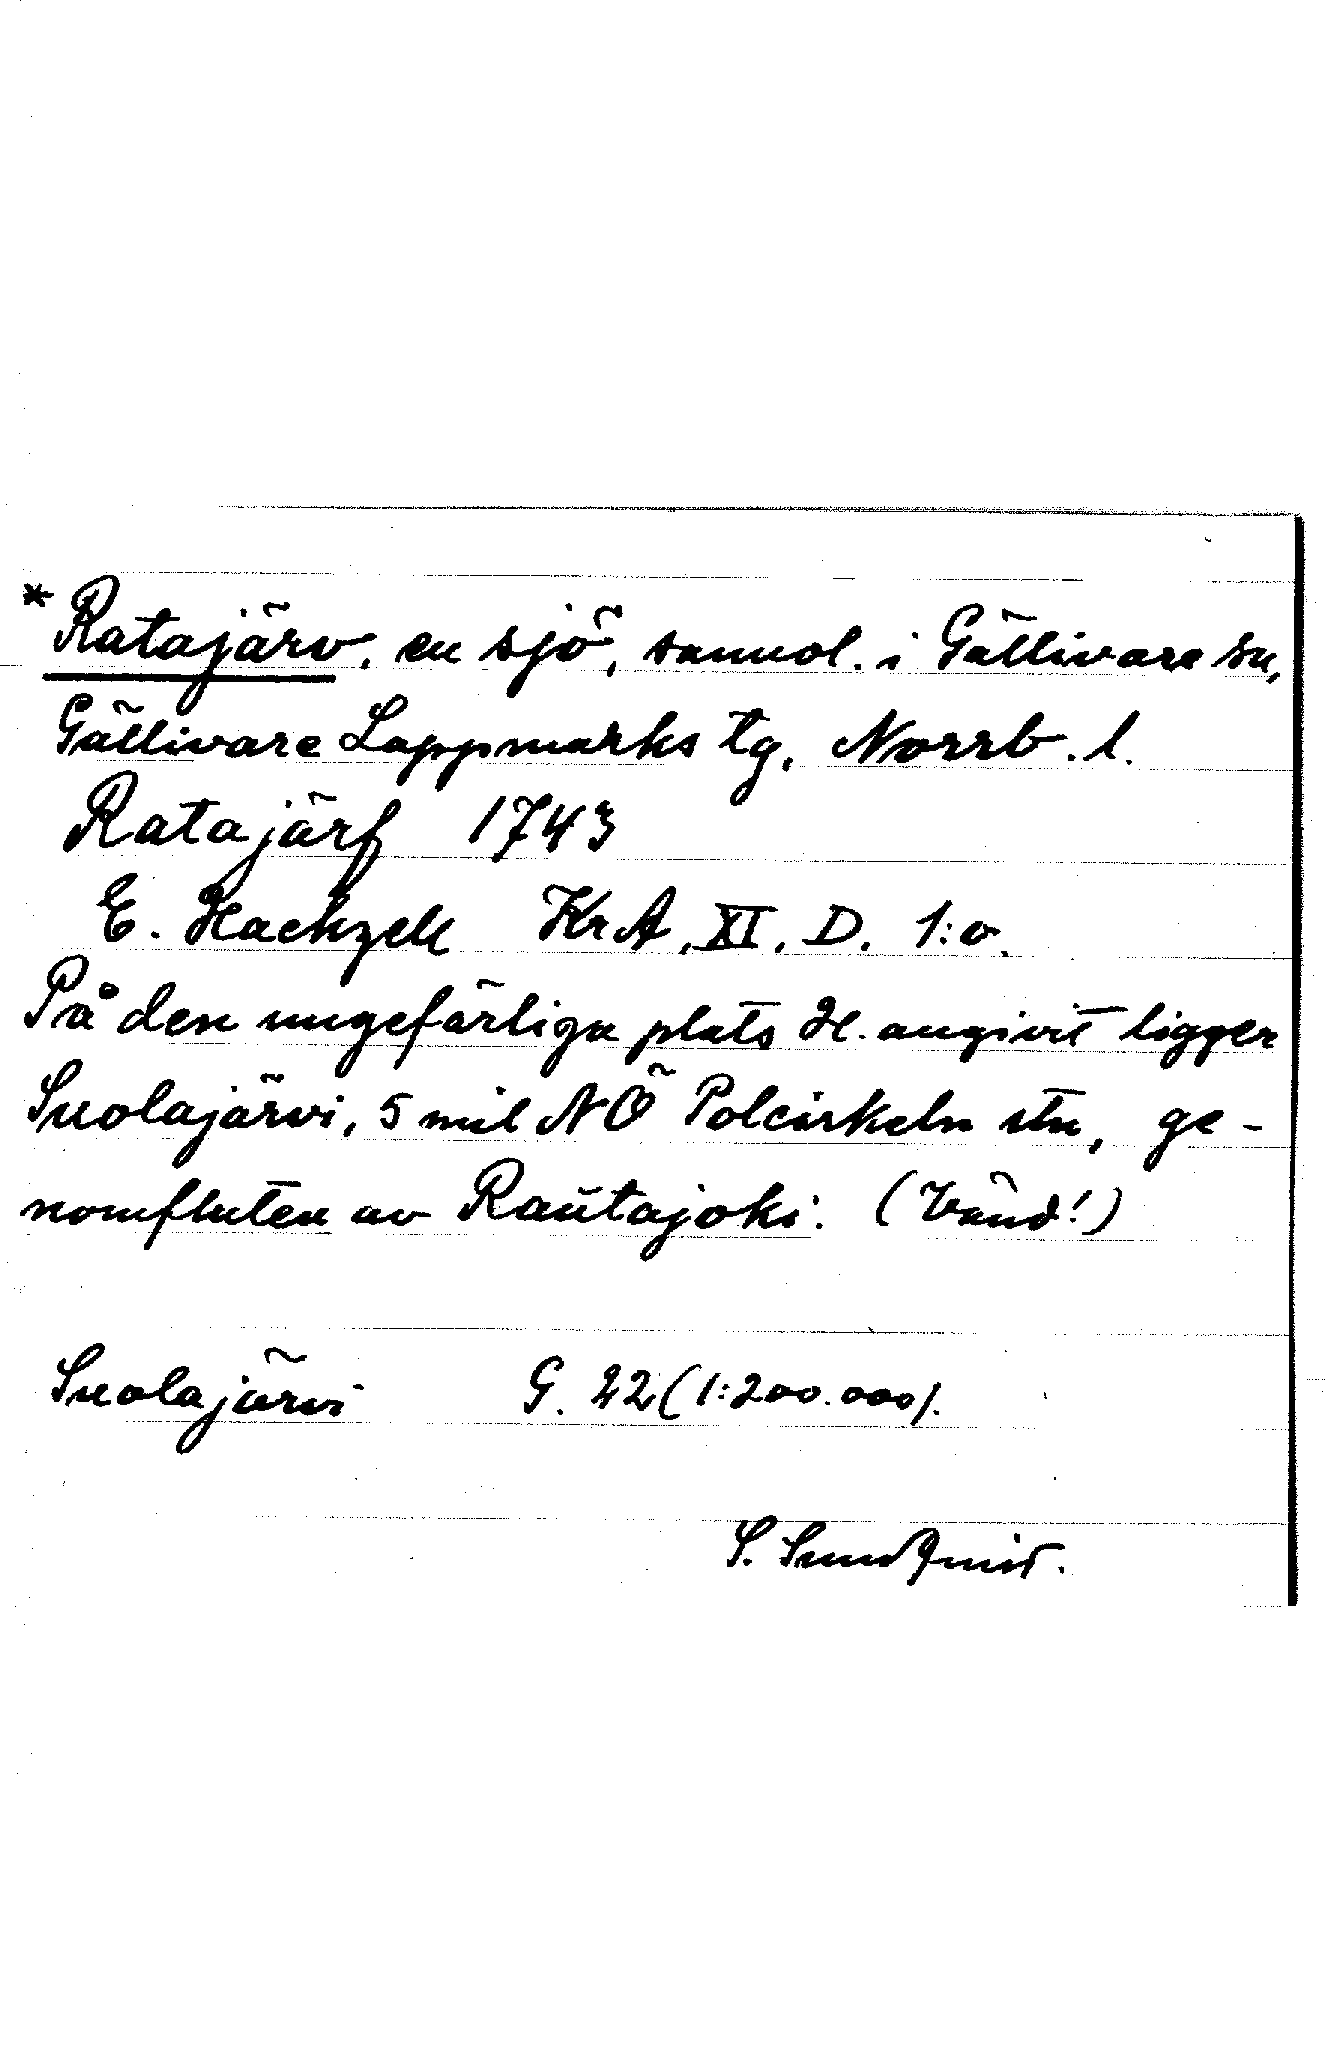 * Ratajärv, en sjö, sannol. i Gällivare sn,
Gällivare Lappmarks tg, Norrb. l.
Ratajärf 1743
E. Hackzell KrA, XI, D. 1:o.
På den ungefärliga plats H. angivit ligger
Suolajärvi, 5 mil NÖ Polcirkeln stn, ge-
nomfluten av Rautajoki. (Vänd!)
Suolajärvi G. 22 (1:200.000).
S. Sundqvist.